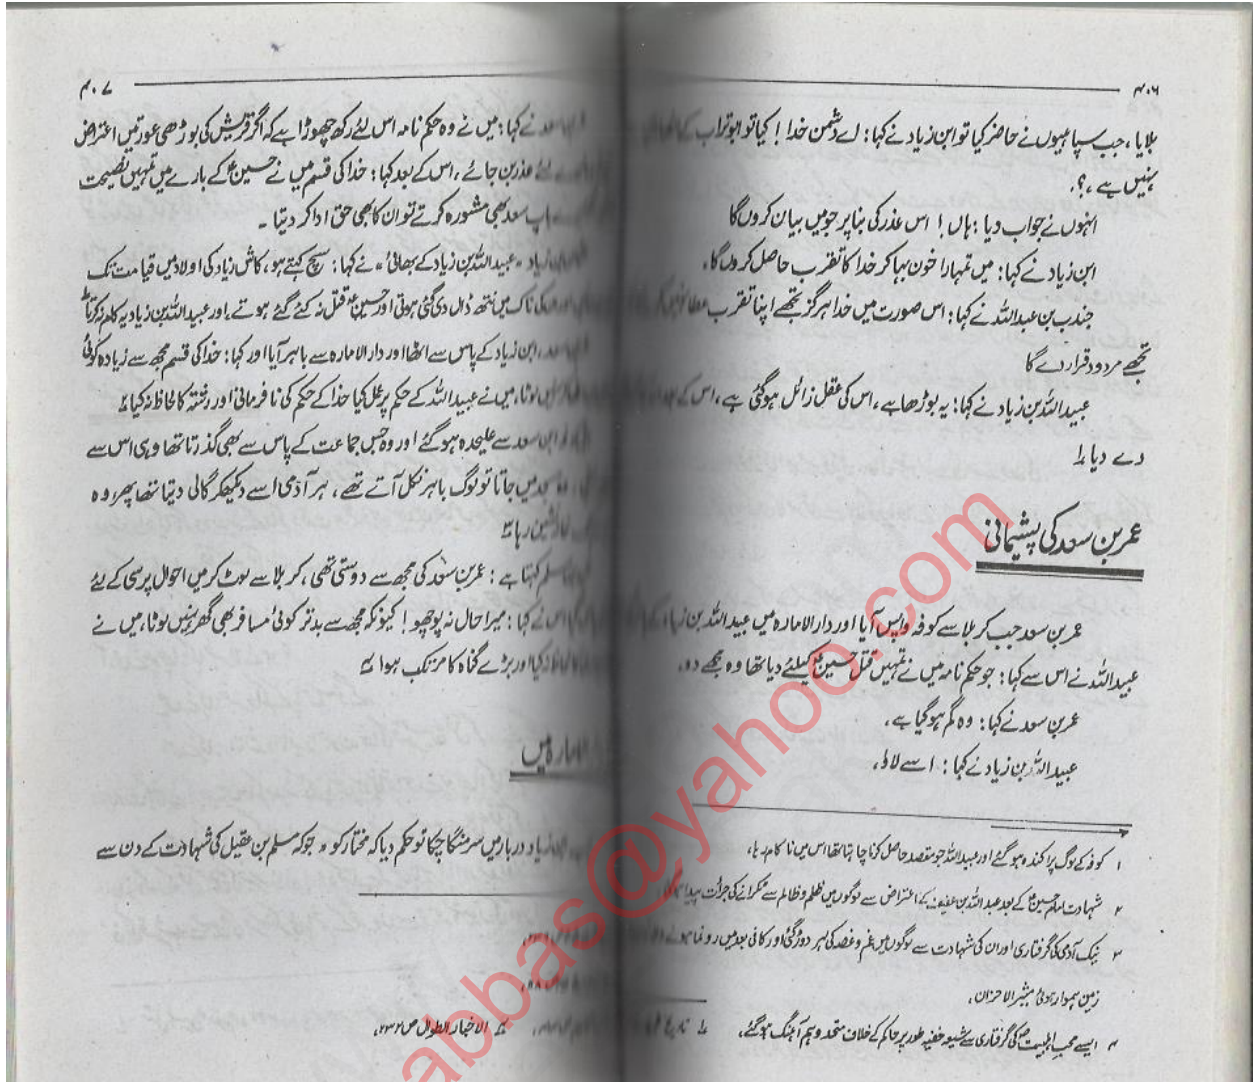 ۴۰۶
بلایا، جب سپاہیوں نے حاضر کیا تو ابن زیاد نے کہا: اے دشمن خدا! کیا تو ابو تراب کے
نہیں ہے،؟.
انہوں نے جواب دیا: ہاں! اس عذر کی بنا پر جو میں بیان کروں گا
ابن زیاد نے کہا: میں تمہارا خون بہا کر خدا کا تقرب حاصل کروں گا،
جندب بن عبد اللہ نے کہا: اس صورت میں خدا ہرگز تجھے اپنا تقرب عطا نہیں
تجھے مردود قرار دے گا
عبید اللہ بن زیاد نے کہا: یہ بوڑھا ہے، اس کی عقل زائل ہو گئی ہے، اس کے
دے دیا۴
عمر بن سعد کی پشیمانی
عمر بن سعد جب کربلا سے کوفہ واپس آیا اور دار الامارہ میں عبید اللہ بن زیاد
عبید اللہ نے اس سے کہا: جو حکم نامہ میں نے تمہیں قتل حسینؑ کیلئے دیا تھا وہ مجھے دو.
عمر بن سعد نے کہا: وہ گم ہو گیا ہے،
عبید اللہ بن زیاد نے کہا: اسے لاؤ،
۱ کوفہ کے لوگ پراکندہ ہو گئے اور عبید اللہ جو مقصد حاصل کرنا چاہتا تھا اس میں ناکام رہا،
۲ شہادت امام حسینؑ کے بعد عبد اللہ بن عفیف کے اعتراض سے لوگوں میں ظلم و ظالم سے ٹکرانے کی جرأت پیدا
۳ نیک آدمی کی گرفتاری اور ان کی شہادت سے لوگوں میں غم و غصہ کی لہر دوڑ گئی اور کافی بعد میں رونما ہونے
زمین ہموار ہوئی مثیر الاحزان،
۴ ایسے محب اہلبیتؑ کی گرفتاری سے شیعہ خفیہ طور پر حاکم کے خلاف متحد و ہم آہنگ ہو گئے،
۴۰۷
سعد نے کہا: میں نے وہ حکم نامہ اس لئے رکھ چھوڑا ہے کہ اگر قریش کی بوڑھی عورتیں اعتراض
لئے عذر بن جائے، اس کے بعد کہا: خدا کی قسم میں نے حسینؑ کے بارے میں تمہیں نصیحت
باپ سعد بھی مشورہ کرتے تو ان کا بھی حق ادا کر دیتا۔
زیاد «عبید اللہ بن زیاد کے بھائی» نے کہا: سچ کہتے ہو، کاش زیاد کی اولاد میں قیامت تک
کی ناک میں نتھ ڈال دی گئی ہوتی اور حسینؑ قتل نہ کئے گئے ہوتے، اور عبید اللہ بن زیاد یہ کام نہ کرتا
سعد، ابن زیاد کے پاس سے اٹھا اور دار الامارہ سے باہر آیا اور کہا: خدا کی قسم مجھ سے زیادہ کوئی
نہیں لوٹا، میں نے عبید اللہ کے حکم پر عمل کیا خدا کے حکم کی نافرمانی اور رشتہ کا لحاظ نہ کیا
ابن سعد سے علیحدہ ہو گئے اور وہ جس جماعت کے پاس سے بھی گذرتا تھا وہی اس سے
میں جاتا تو لوگ باہر نکل آتے تھے، ہر آدمی اسے دیکھکر گالی دیتا تھا پھر وہ
رہا
کہتا ہے: عمر بن سعد کی مجھ سے دوستی تھی، کربلا سے لوٹ کر میں احوال پرسی کے لئے
نے کہا: میرا حال نہ پوچھو! کیونکہ مجھ سے بدتر کوئی مسافر بھی گھر نہیں لوٹا، میں نے
اور بڑے گناہ کا مرتکب ہوا
الامارہ میں
زیاد دربار میں سر منگا چکا تو حکم دیا کہ مختار کو «جو کہ مسلم بن عقیل کی شہادت کے دن سے
الاخبار الطوال ص
abbas@yahoo.com